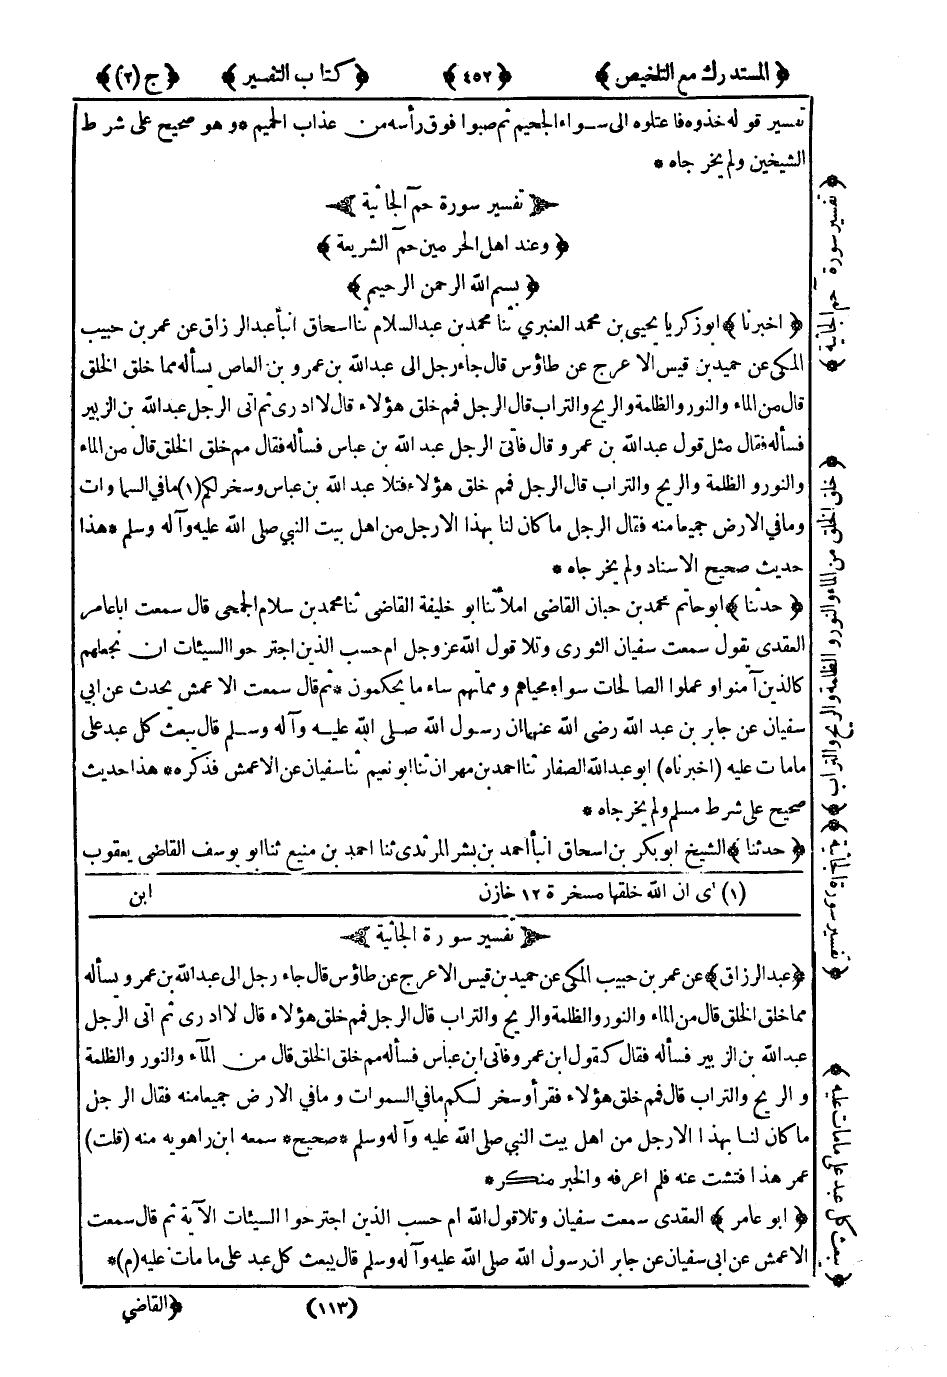 ﴿ المستدرك مع التلخيص ﴾ ﴿ ٤٥٢ ﴾ ﴿ كتاب التفسير ﴾ ﴿ ج (٢) ﴾
تفسير قوله خذوه فاعتلوه الى سواء الجحيم ثم صبوا فوق رأسه من عذاب الحميم * وهو صحيح على شرط
الشيخين ولم يخرجاه *
﴿ تفسير سورة حم الجاثية ﴾
﴿ وعند اهل الحرمين حم الشريعة ﴾
﴿ بسم الله الرحمن الرحيم ﴾
﴿ اخبرنا ﴾ ابو زكريا يحيى بن محمد العنبري ثنا محمد بن عبد السلام ثنا اسحاق انبأ عبد الرزاق عن عمر بن حبيب
المكى عن حميد بن قيس الاعرج عن طاؤس قال جاء رجل الى عبد الله بن عمرو بن العاص يسأله مما خلق الخلق
قال من الماء والنور والظلمة والريح والتراب قال الرجل فمم خلق هؤلاء قال لا ادرى ثم اتى الرجل عبد الله بن الزبير
فسأله فقال مثل قول عبد الله بن عمرو قال فاتى الرجل عبد الله بن عباس فسأله فقال مم خلق الخلق قال من الماء
والنور و الظلمة والريح والتراب قال الرجل فمم خلق هؤلاء فتلا عبد الله بن عباس وسخر لكم (١) ما في السماوات
وما في الارض جميعا منه فقال الرجل ما كان لنا بهذا الا رجل من اهل بيت النبي صلى الله عليه وآله وسلم * هذا
حديث صحيح الاسناد ولم يخرجاه *
﴿ حدثنا ﴾ ابو حاتم محمد بن حبان القاضى املأ ثنا ابو خليفة القاضى ثنا محمد بن سلام الجمحى قال سمعت ابا عامر
العقدى يقول سمعت سفيان الثورى وتلا قول الله عز وجل ام حسب الذين اجترحوا السيئات ان نجعلهم
كالذين آمنوا وعملوا الصالحات سواء محياهم ومماتهم ساء ما يحكمون * ثم قال سمعت الاعمش يحدث عن ابي
سفيان عن جابر بن عبد الله رضى الله عنهما ان رسول الله صلى الله عليه وآله وسلم قال يبعث كل عبد على
مامات عليه (اخبرناه) ابو عبد الله الصفار ثنا احمد بن مهران ثنا ابو نعيم ثنا سفيان عن الاعمش فذكره * هذا حديث
صحيح على شرط مسلم ولم يخرجاه *
﴿ حدثنا ﴾ الشيخ ابو بكر بن اسحاق انبأ احمد بن بشر المرثدى ثنا احمد بن منيع ثنا ابو يوسف القاضى يعقوب
(١) اى ان الله خلقها مسخرة ١٢ خازن
ابن
﴿ تفسير سورة الجاثية ﴾
﴿ عبد الرزاق ﴾ عن عمر بن حبيب المكى عن حميد بن قيس الاعرج عن طاؤس قال جاء رجل الى عبد الله بن عمرو يسأله
مما خلق الخلق قال من الماء والنور والظلمة والريح والتراب قال الرجل فمم خلق هؤلاء قال لا ادرى ثم اتى الرجل
عبد الله بن الزبير فسأله فقال كقول ابن عمرو فاتى ابن عباس فسأله مم خلق الخلق قال من المآء والنور والظلمة
و الريح والتراب قال فمم خلق هؤلاء فقرأ وسخر لكم ما في السموات و مافي الارض جميعا منه فقال الرجل
ما كان لنا بهذا الا رجل من اهل بيت النبي صلى الله عليه وآله وسلم * صحيح * سمعه ابن راهويه منه (قلت)
عمر هذا فتشت عنه فلم اعرفه والخبر منكر *
﴿ ابو عامر ﴾ العقدى سمعت سفيان وتلا قول الله ام حسب الذين اجترحوا السيئات الآية ثم قال سمعت
الاعمش عن ابى سفيان عن جابر ان رسول الله صلى الله عليه وآله وسلم قال يبعث كل عبد على ما مات عليه (م) *
(١١٣)
﴿ القاضي
﴿ تفسير سورة حم الجاثية ﴾
﴿ خلق الخلق من الماء والنور و الظلمة والريح والتراب ﴾
﴿ تفسير سورة الجاثية ﴾
﴿ يبعث كل عبد على مامات عليه ﴾